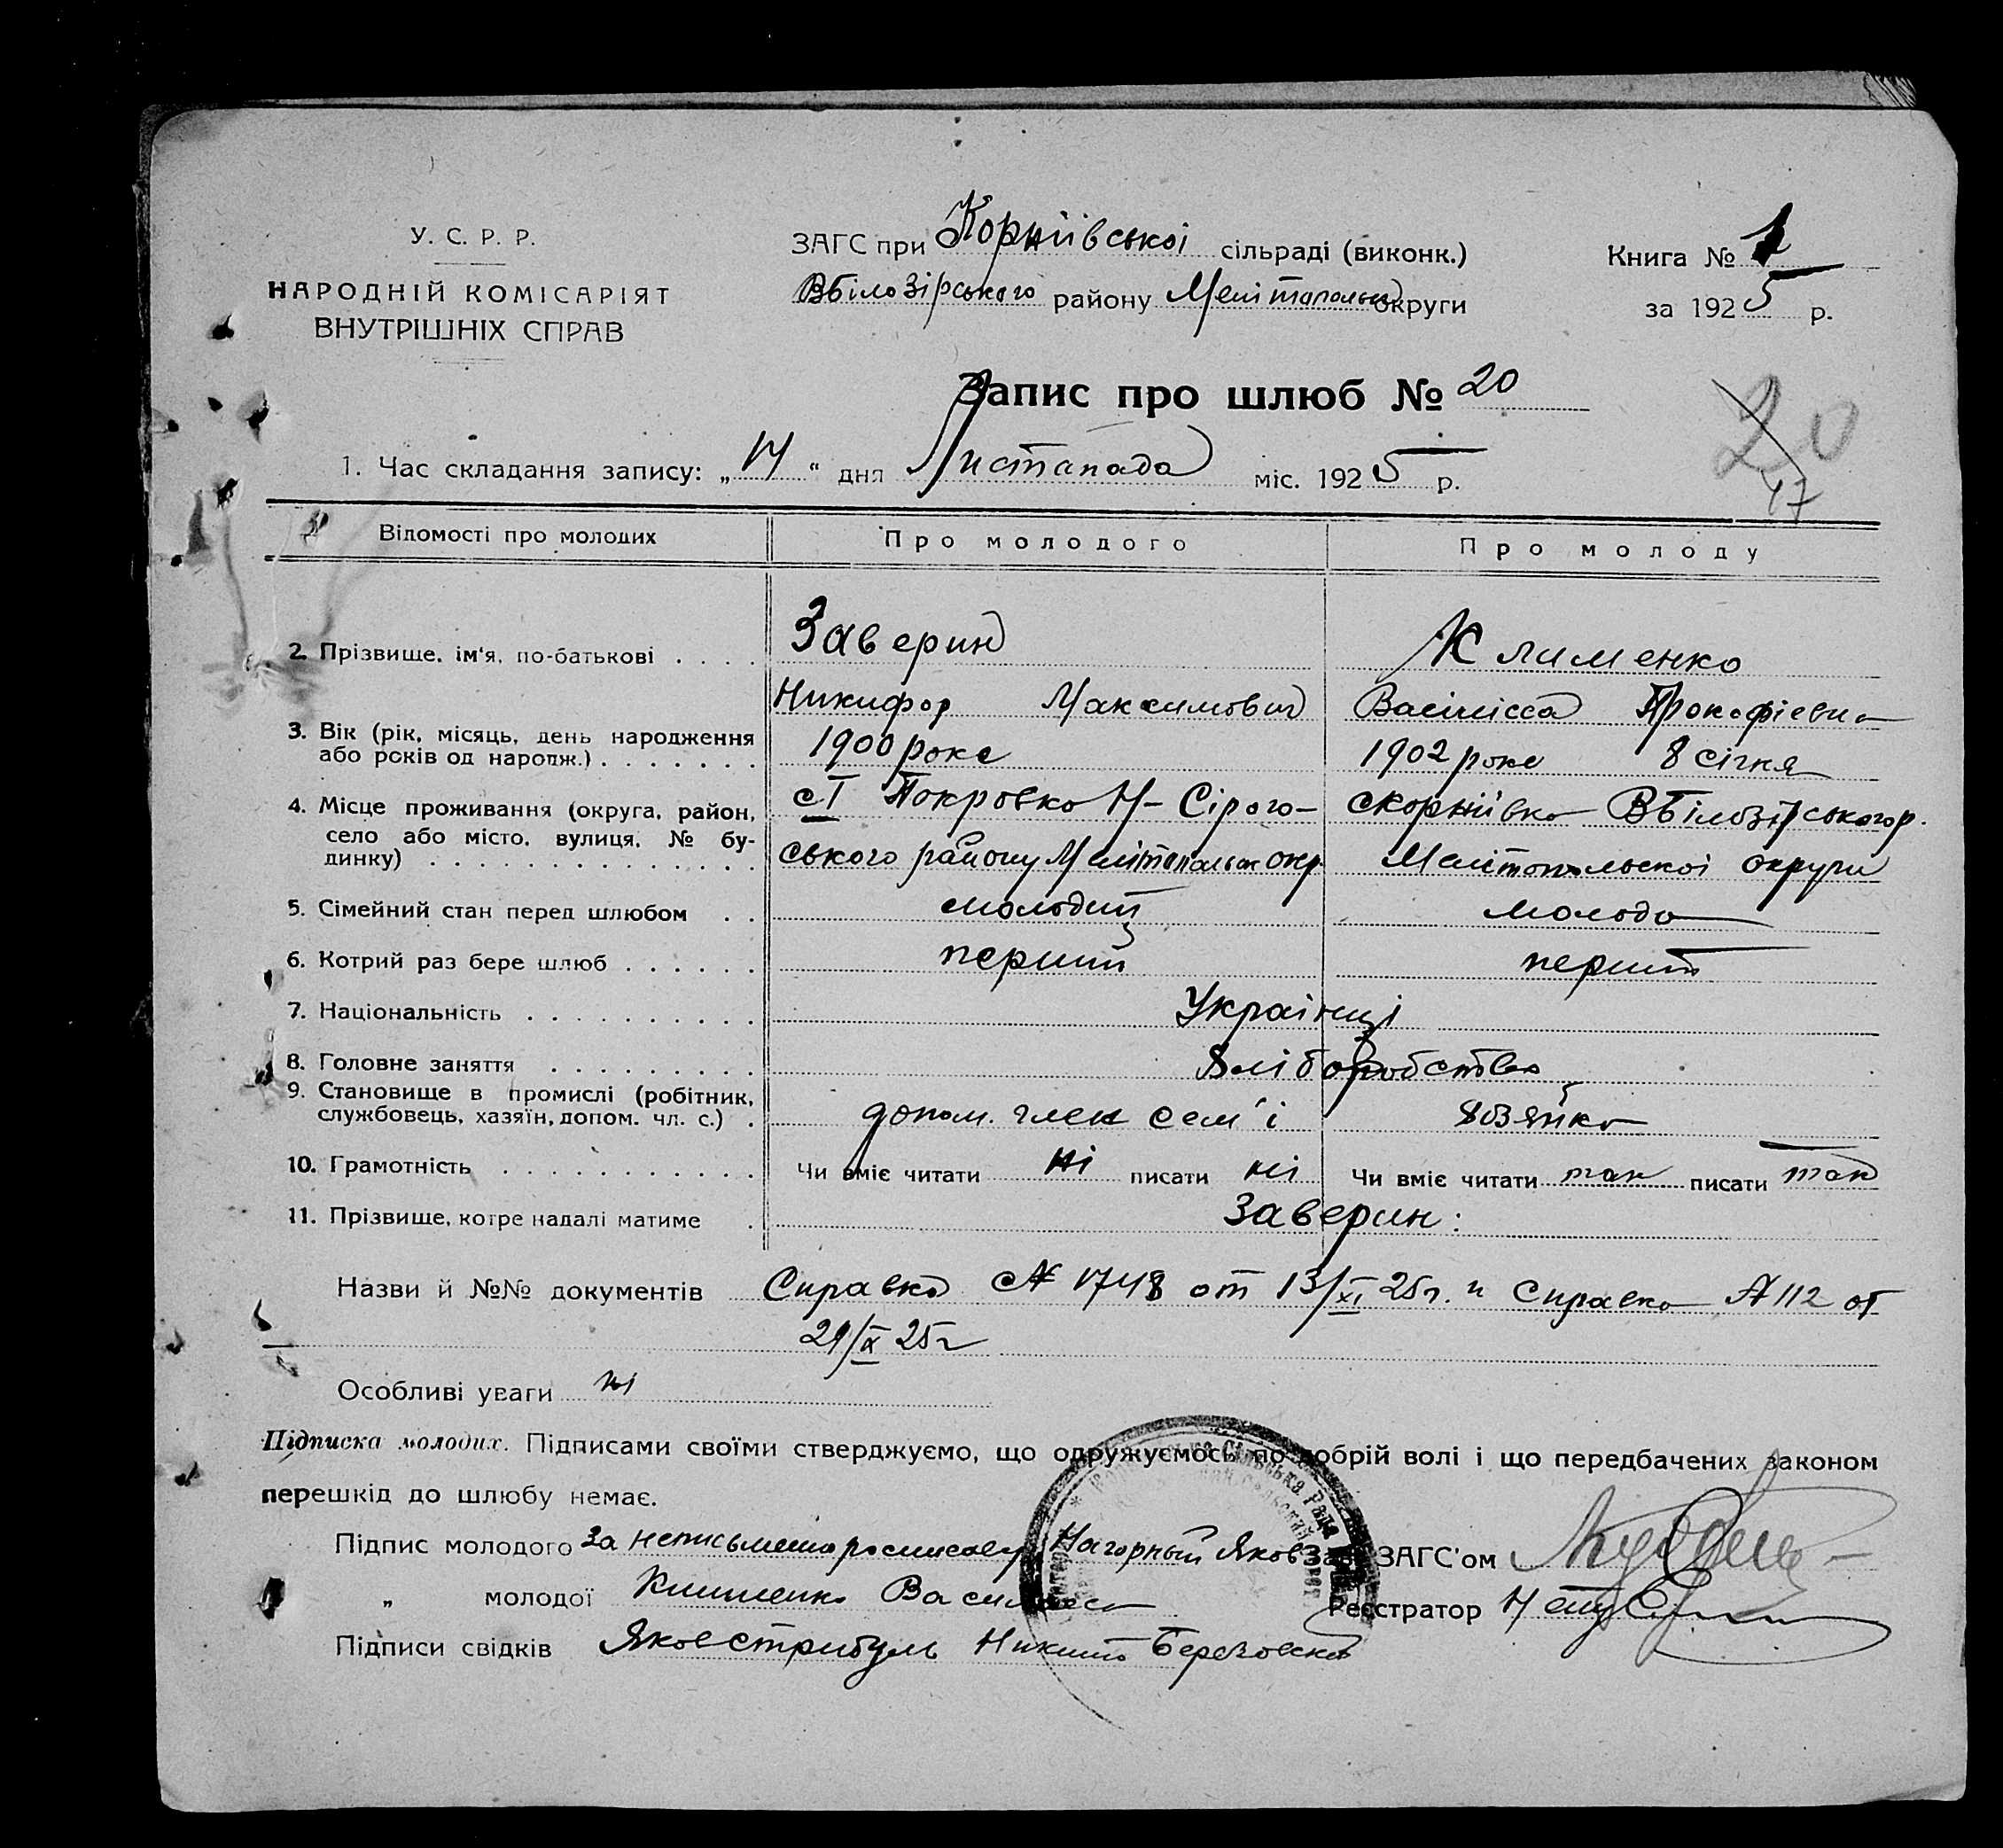 У. С. Р. Р.
НАРОДНІЙ КОМІСАРІЯТ
ВНУТРІШНІХ СПРАВ
ЗАГС при Корніівськоі сільраді (виконк.)
Вбілозірського району Мелітопольськ округи
Книга № 1
за 1925 р.
Запис про шлюб № 20
20
17
1. Час складання запису: „17“ дня Листапада міс. 1925 р.
Відомості про молодих Про молодого Про молоду
2. Прізвище, ім'я, по-батькові . . . . Заверин Клименко
Никифор Максимович Васілісса Прокофіевна
3. Вік (рік, місяць, день народження
або років од народж.) . . . . . . . 1900 роке 1902 роке 8 січня
4. Місце проживання (округа, район,
село або місто, вулиця, № бу-
динку) . . . . . . . . . . . . . .
сТ Покровко Н-Сірого-
ського району Мелітопольск окр.
с Корніівко Вбілозірського р.
Мелітопольскоі округи
5. Сімейний стан перед шлюбом . . молодий молода
6. Котрий раз бере шлюб . . . . . . перший перший
7. Національність . . . . . . . . . . Украінці
8. Головне заняття . . . . . . . . . хліборобство
9. Становище в промислі (робітник,
службовець, хазяїн, допом. чл. с.) . допом. член сем'і хозяйка
10. Грамотність . . . . . . . . . . . Чи вміє читати ні писати ні Чи вміє читати так писати так
11. Прізвище, котре надалі матиме . Заверин:
Назви й №№ документів Справка № 1748 от 13/XI 25г. и Справка № 112 от
29/IX 25г
Особливі уваги ні
Підписка молодих. Підписами своїми стверджуємо, що одружуємось по добрій волі і що передбачених законом
перешкід до шлюбу немає.
Підпис молодого За неписьмена Нагорный Яков Зав. ЗАГС'ом
„ молодої Клименко Василиса Реєстратор
Підписи свідків Яков Стрибуль Никита Березовский
Сільська Рада